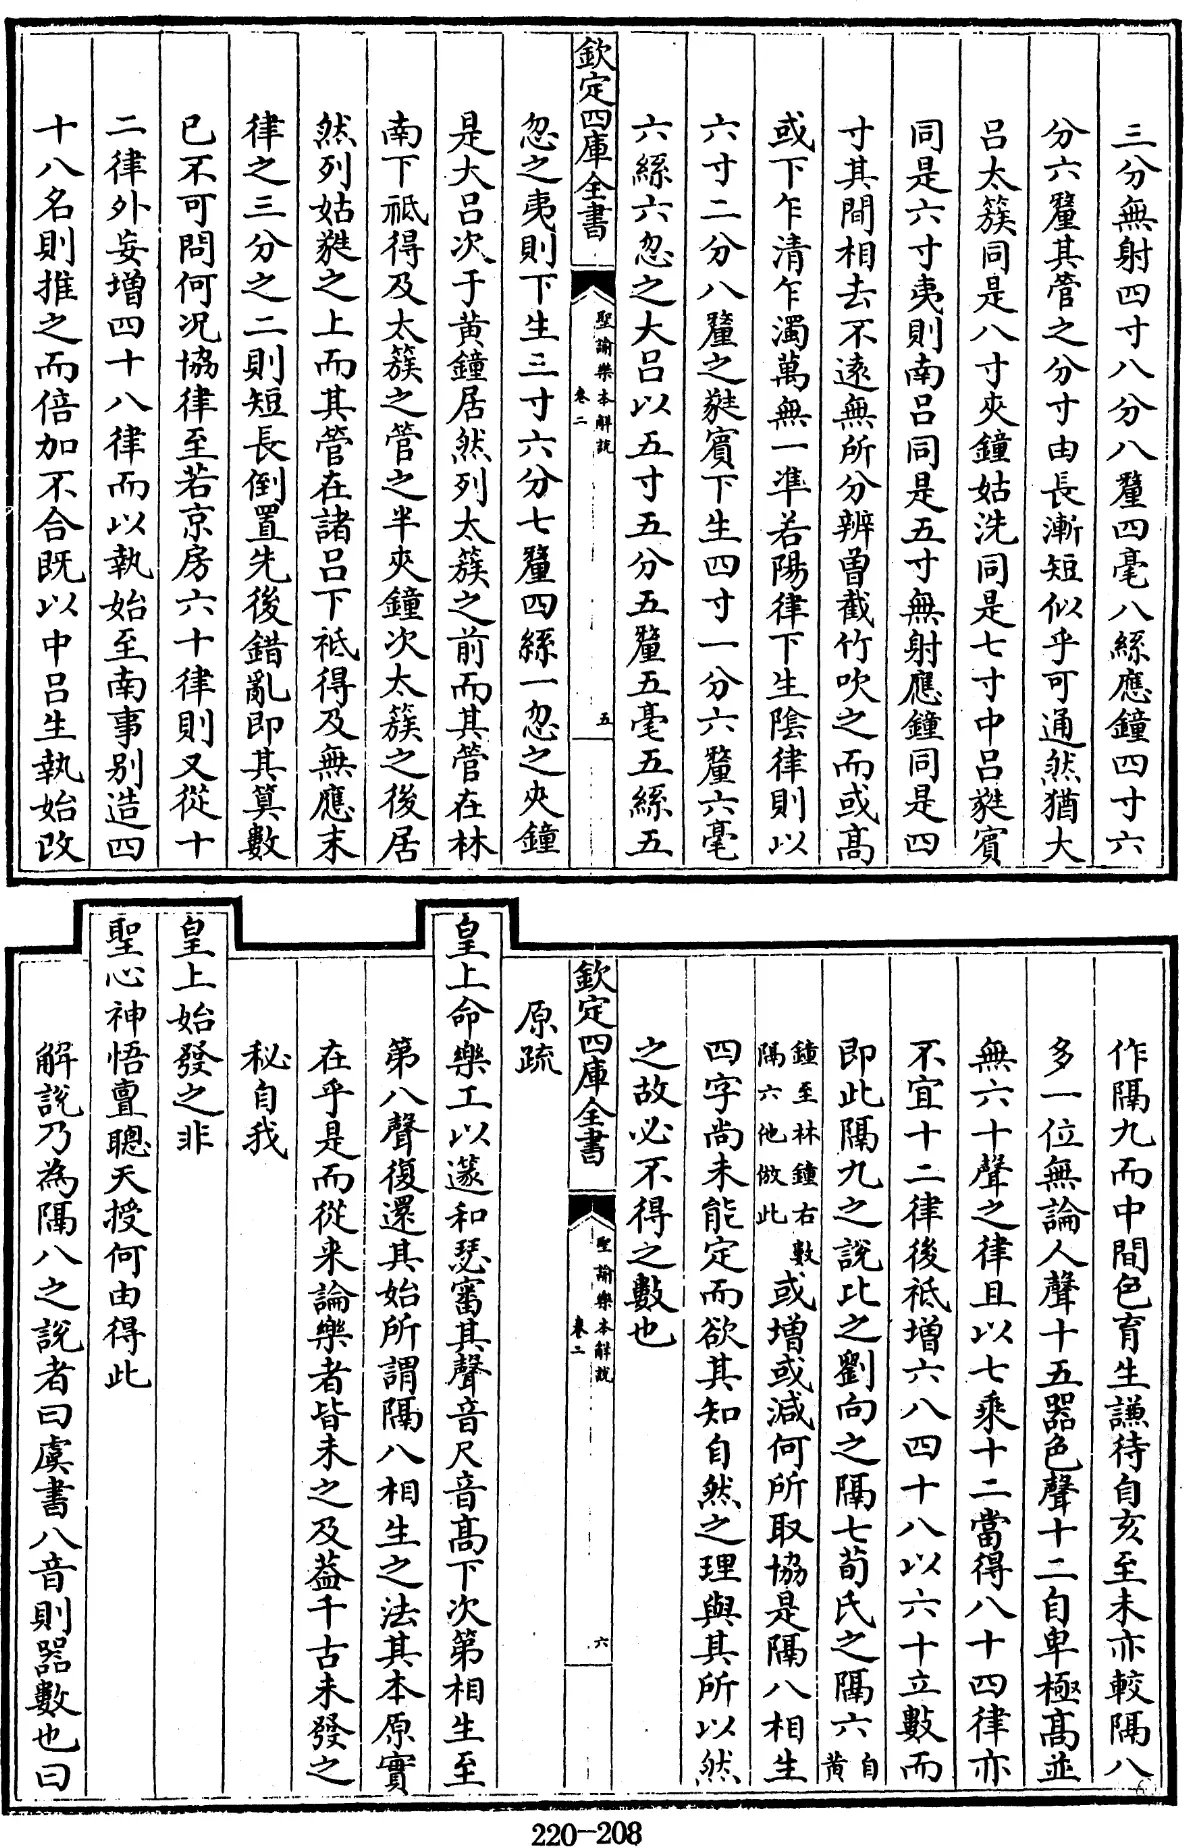 三分無射四寸八分八釐四毫八絲應鐘四寸六
分六釐其管之分寸由長漸短似乎可通然猶大
呂太簇同是八寸夾鐘姑洗同是七寸中呂蕤賓
同是六寸夷則南呂同是五寸無射應鐘同是四
寸其間相去不遠無所分辨曾截竹吹之而或高
或下乍清乍濁萬無一準若陽律下生陰律則以
六寸二分八釐之蕤賓下生四寸一分六釐六毫
六絲六忽之大呂以五寸五分五釐五毫五絲五
欽定四庫全書
聖諭樂本解說
卷二
五
忽之夷則下生三寸六分七釐四絲一忽之夾鐘
是大呂次于黃鐘居然列太簇之前而其管在林
南下祗得及太簇之管之半夾鐘次太簇之後居
然列姑蕤之上而其管在諸呂下祗得及無應末
律之三分之二則短長倒置先後錯亂即其算數
已不可問何況協律至若京房六十律則又從十
二律外妄增四十八律而以執始至南事别造四
十八名則推之而倍加不合既以中呂生執始改
作隔九而中間色育生謙待自亥至未亦較隔八
多一位無論人聲十五器色聲十二自卑極高並
無六十聲之律且以七乘十二當得八十四律亦
不宜十二律後祗增六八四十八以六十立數而
即此隔九之說比之劉向之隔七荀氏之隔六自黃
鐘至林鐘右數隔六他倣此或增或減何所取協是隔八相生
四字尚未能定而欲其知自然之理與其所以然
之故必不得之數也
欽定四庫全書
聖諭樂本解說
卷二
六
原疏
皇上命樂工以篴和瑟審其聲音尺音高下次第相生至
第八聲復還其始所謂隔八相生之法其本原實
在乎是而從来論樂者皆未之及葢千古未發之
秘自我
皇上始發之非
聖心神悟亶聰天授何由得此
解說乃為隔八之說者曰虞書八音則器數也曰
220-208